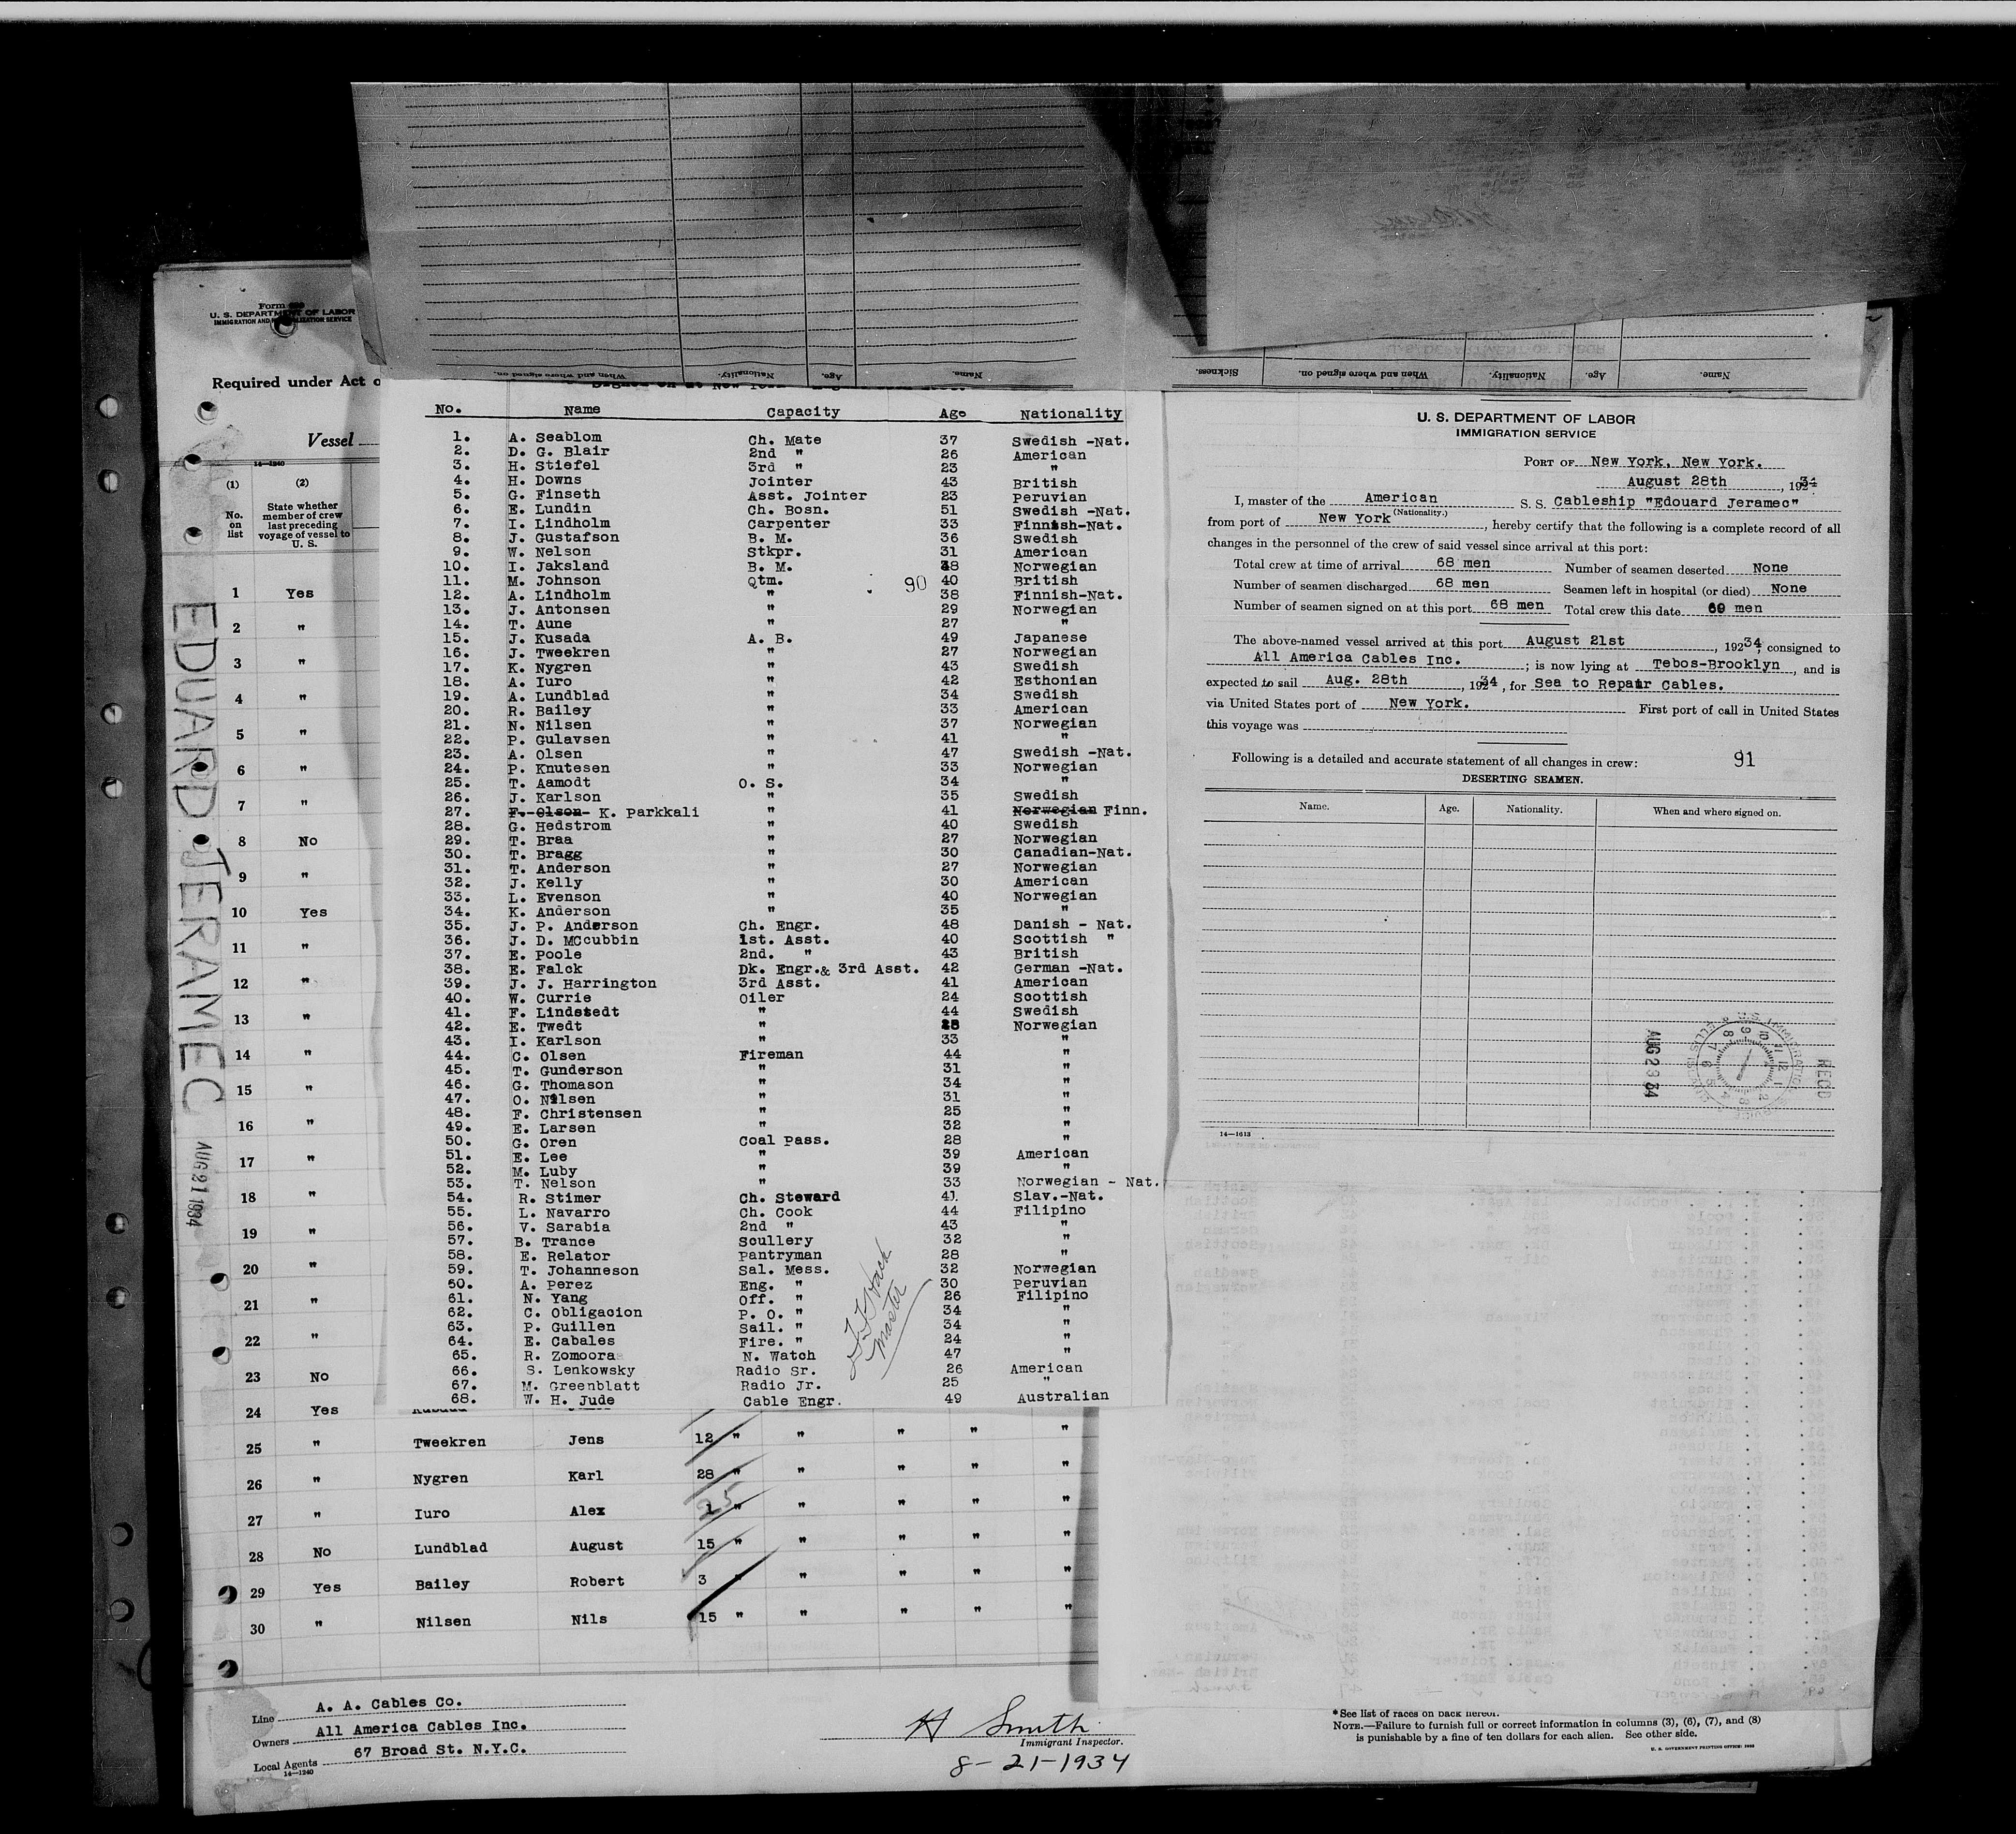 Form
U. S. DEPARTMENT OF LABOR
IMMIGRATION AND NATURALIZATION SERVICE
Required under Act o
Vessel
14—1240
(1) (2)
No. on list
State whether member of crew last preceding voyage of vessel to U. S.
1 Yes
2 "
3 "
4 "
5 "
6 "
7 "
8 No
9 "
10 Yes
11 "
12 "
13 "
14 "
15 "
16 "
17 "
18 "
19 "
20 "
21 "
22 "
23 No
24 Yes
EDUARD JERAMEC
AUG 21 1934
When and where signed on. Nationality. Age. Name.
Sickness. When and where signed on. Nationality. Age. Name.
No. Name Capacity Age Nationality
1. A. Seablom Ch. Mate 37 Swedish -Nat.
2. D. G. Blair 2nd " 26 American
3. H. Stiefel 3rd " 23 "
4. H. Downs Jointer 43 British
5. G. Finseth Asst. Jointer 23 Peruvian
6. E. Lundin Ch. Bosn. 51 Swedish -Nat.
7. I. Lindholm Carpenter 33 Finnish-Nat.
8. J. Gustafson B. M. 36 Swedish
9. W. Nelson Stkpr. 31 American
10. I. Jaksland B. M. 38 Norwegian
11. M. Johnson Qtm. 90 40 British
12. A. Lindholm " 38 Finnish-Nat.
13. J. Antonsen " 29 Norwegian
14. T. Aune " 27 "
15. J. Kusada A. B. 49 Japanese
16. J. Tweekren " 27 Norwegian
17. K. Nygren " 43 Swedish
18. A. Iuro " 42 Esthonian
19. A. Lundblad " 34 Swedish
20. R. Bailey " 33 American
21. N. Nilsen " 37 Norwegian
22. P. Gulavsen " 41 "
23. A. Olsen " 47 Swedish -Nat.
24. P. Knutesen " 33 Norwegian
25. T. Aamodt O. S. 34 "
26. J. Karlson " 35 Swedish
27. F. Olson K. Parkkali " 41 Norwegian Finn.
28. G. Hedstrom " 40 Swedish
29. T. Braa " 27 Norwegian
30. T. Bragg " 30 Canadian-Nat.
31. T. Anderson " 27 Norwegian
32. J. Kelly " 30 American
33. L. Evenson " 40 Norwegian
34. K. Anderson " 35 "
35. J. P. Anderson Ch. Engr. 48 Danish - Nat.
36. J. D. MCcubbin 1st. Asst. 40 Scottish "
37. E. Poole 2nd. " 43 British
38. E. Falck Dk. Engr.& 3rd Asst. 42 German -Nat.
39. J. J. Harrington 3rd Asst. 41 American
40. W. Currie Oiler 24 Scottish
41. F. Lindstedt " 44 Swedish
42. E. Twedt " Norwegian
43. I. Karlson " 33 "
44. C. Olsen Fireman 44 "
45. T. Gunderson " 31 "
46. G. Thomason " 34 "
47. O. Nilsen " 31 "
48. F. Christensen " 25 "
49. E. Larsen " 32 "
50. G. Oren Coal Pass. 28 "
51. E. Lee " 39 American
52. M. Luby " 39 "
53. T. Nelson " 33 Norwegian - Nat.
54. R. Stimer Ch. Steward 41 Slav.-Nat.
55. L. Navarro Ch. Cook 44 Filipino
56. V. Sarabia 2nd " 43 "
57. B. Trance Scullery 32 "
58. E. Relator Pantryman 28 "
59. T. Johanneson Sal. Mess. 32 Norwegian
60. A. Perez Eng. " 30 Peruvian
61. N. Yang Off. " 26 Filipino
62. C. Obligacion P. O. " 34 "
63. P. Guillen Sail. " 34 "
64. E. Cabales Fire. " 24 "
65. R. Zomoora N. Watch 47 "
66. S. Lenkowsky Radio Sr. 26 American
67. M. Greenblatt Radio Jr. 25 "
68. W. H. Jude Cable Engr. 49 Australian
Master
25 " Tweekren Jens 12 " " " " "
26 " Nygren Karl 28 " " " " "
25
27 " Iuro Alex 1 " " " " "
28 No Lundblad August 15 " " " " "
29 Yes Bailey Robert 3 " " " " "
30 " Nilsen Nils 15 " " " " "
Line A. A. Cables Co.
Owners All America Cables Inc.
Local Agents 67 Broad St. N.Y.C.
14—1240
H Smith
Immigrant Inspector.
8-21-1934
U. S. DEPARTMENT OF LABOR
IMMIGRATION SERVICE
PORT OF New York, New York.
August 28th, 1934
I, master of the American S. S. Cableship "Edouard Jeramec"
(Nationality.)
from port of New York, hereby certify that the following is a complete record of all
changes in the personnel of the crew of said vessel since arrival at this port:
Total crew at time of arrival 68 men Number of seamen deserted None
Number of seamen discharged 68 men Seamen left in hospital (or died) None
Number of seamen signed on at this port 68 men Total crew this date 69 men
The above-named vessel arrived at this port August 21st, 19234, consigned to
All America Cables Inc. ; is now lying at Tebos-Brooklyn, and is
expected to sail Aug. 28th, 19234, for Sea to Repair Cables.
via United States port of New York. First port of call in United States
this voyage was
Following is a detailed and accurate statement of all changes in crew: 91
DESERTING SEAMEN.
Name. Age. Nationality. When and where signed on.
REC'D
AUG 29 34
14—1613
*See list of races on back hereof.
NOTE.—Failure to furnish full or correct information in columns (3), (6), (7), and (8)
is punishable by a fine of ten dollars for each alien. See other side.
U. S. GOVERNMENT PRINTING OFFICE: 1933